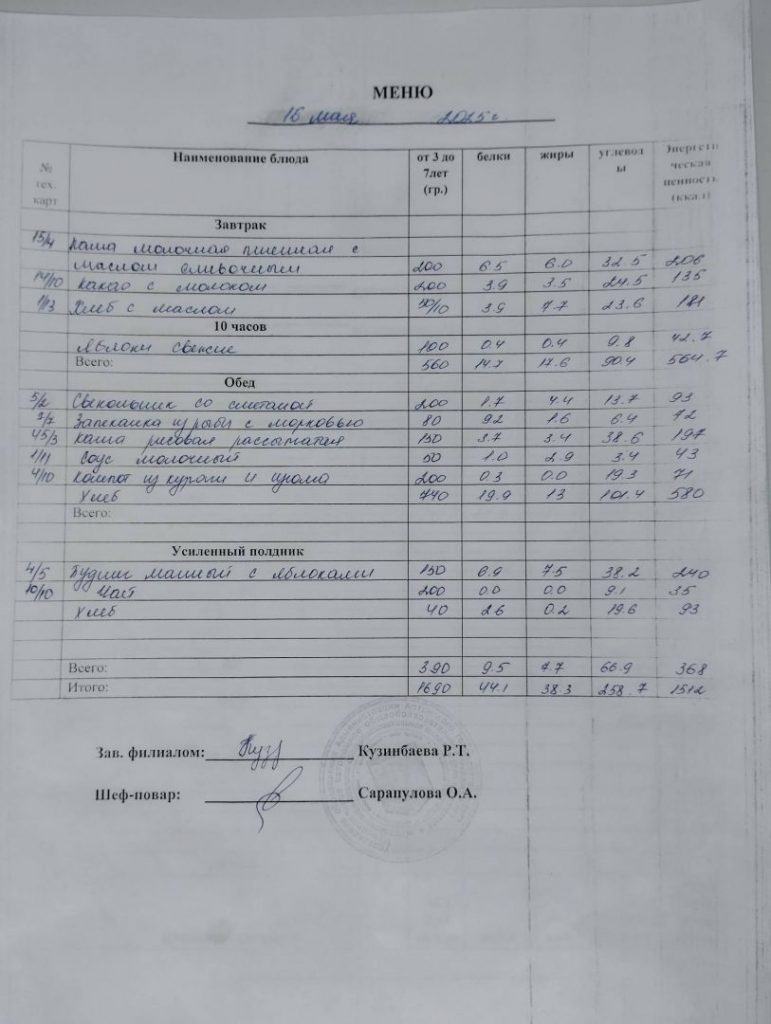 МЕНЮ
16 мая 2025 г.
№ тех. карт Наименование блюда от 3 до 7лет (гр.) белки жиры углеводы Энергетическая ценность (ккал)
Завтрак
15/4 Каша молочная пшенная с
маслом сливочным 200 6.5 6.0 32.5 206
14/10 Какао с молоком 200 3.9 3.5 24.5 135
1/13 Хлеб с маслом 50/10 3.9 7.7 23.6 181
10 часов
Яблоки свежие 100 0.4 0.4 9.8 42.7
Всего: 560 14.7 17.6 90.4 564.7
Обед
5/2 Свекольник со сметаной 200 1.7 4.4 13.7 93
3/7 Запеканка из рыбы с морковью 80 9.2 1.6 6.4 72
45/3 Каша рисовая рассыпчатая 150 3.7 3.4 38.6 197
1/11 Соус молочный 50 1.0 2.9 3.4 43
4/10 Компот из кураги и изюма 200 0.3 0.0 19.3 71
Хлеб 740 19.9 13 101.4 580
Всего:
Усиленный полдник
4/5 Пудинг манный с яблоками 150 6.9 7.5 38.2 240
10/10 Чай 200 0.0 0.0 9.1 35
Хлеб 40 2.6 0.2 19.6 93
Всего: 390 9.5 7.7 66.9 368
Итого: 1690 44.1 38.3 258.7 1512
Зав. филиалом: Кузинбаева Р.Т.
Шеф-повар: Сарапулова О.А.